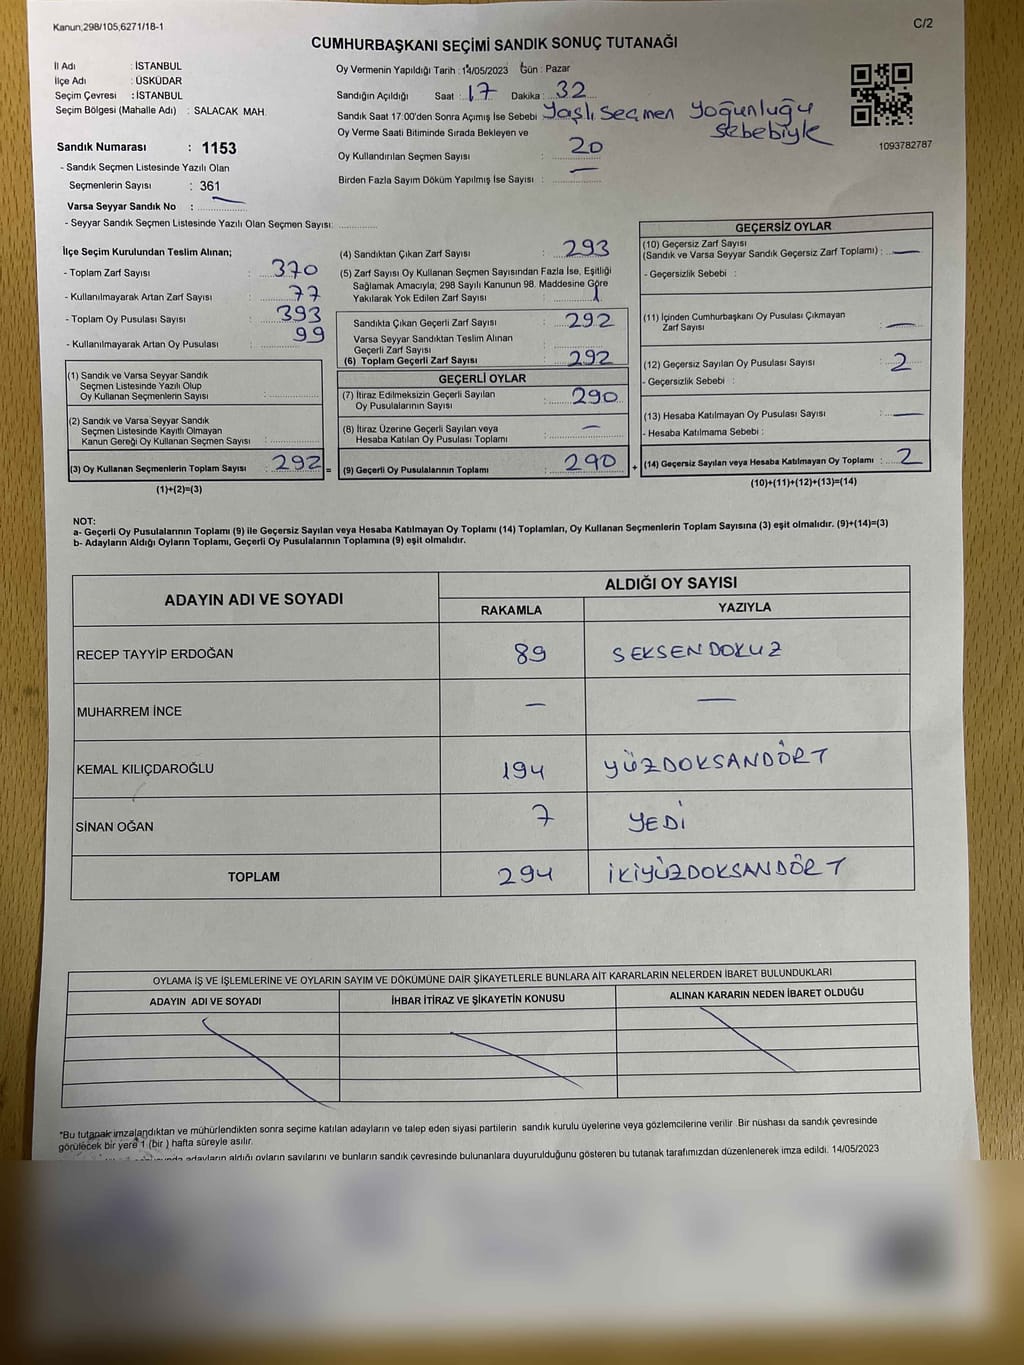 Kanun;298/105,6271/18-1
C/2
CUMHURBAŞKANI SEÇİMİ SANDIK SONUÇ TUTANAĞI
İl Adı : İSTANBUL
İlçe Adı : ÜSKÜDAR
Seçim Çevresi : İSTANBUL
Seçim Bölgesi (Mahalle Adı) : SALACAK MAH.
Sandık Numarası : 1153
- Sandık Seçmen Listesinde Yazılı Olan
Seçmenlerin Sayısı : 361
Varsa Seyyar Sandık No : —
- Seyyar Sandık Seçmen Listesinde Yazılı Olan Seçmen Sayısı:
Oy Vermenin Yapıldığı Tarih : 14/05/2023 Gün : Pazar
Sandığın Açıldığı Saat : 17 Dakika : 32
Sandık Saat 17:00'den Sonra Açımış İse Sebebi Yaşlı Seçmen Yoğunluğu
sebebiyle
Oy Verme Saati Bitiminde Sırada Bekleyen ve
Oy Kullandırılan Seçmen Sayısı : 20
Birden Fazla Sayım Döküm Yapılmış İse Sayısı : —
1093782787
İlçe Seçim Kurulundan Teslim Alınan;
- Toplam Zarf Sayısı : 370
- Kullanılmayarak Artan Zarf Sayısı : 77
- Toplam Oy Pusulası Sayısı : 393
- Kullanılmayarak Artan Oy Pusulası : 99
(1) Sandık ve Varsa Seyyar Sandık
Seçmen Listesinde Yazılı Olup
Oy Kullanan Seçmenlerin Sayısı :
(2) Sandık ve Varsa Seyyar Sandık
Seçmen Listesinde Kayıtlı Olmayan
Kanun Gereği Oy Kullanan Seçmen Sayısı :
(3) Oy Kullanan Seçmenlerin Toplam Sayısı : 292 =
(1)+(2)=(3)
(4) Sandıktan Çıkan Zarf Sayısı : 293
(5) Zarf Sayısı Oy Kullanan Seçmen Sayısından Fazla İse, Eşitliği
Sağlamak Amacıyla, 298 Sayılı Kanunun 98. Maddesine Göre
Yakılarak Yok Edilen Zarf Sayısı : 1
Sandıkta Çıkan Geçerli Zarf Sayısı : 292
Varsa Seyyar Sandıktan Teslim Alınan
Geçerli Zarf Sayısı :
(6) Toplam Geçerli Zarf Sayısı : 292
GEÇERLİ OYLAR
(7) İtiraz Edilmeksizin Geçerli Sayılan
Oy Pusulalarının Sayısı : 290
(8) İtiraz Üzerine Geçerli Sayılan veya
Hesaba Katılan Oy Pusulası Toplamı : —
(9) Geçerli Oy Pusulalarının Toplamı : 290 +
GEÇERSİZ OYLAR
(10) Geçersiz Zarf Sayısı
(Sandık ve Varsa Seyyar Sandık Geçersiz Zarf Toplamı) : —
- Geçersizlik Sebebi :
(11) İçinden Cumhurbaşkanı Oy Pusulası Çıkmayan
Zarf Sayısı : —
(12) Geçersiz Sayılan Oy Pusulası Sayısı : 2
- Geçersizlik Sebebi :
(13) Hesaba Katılmayan Oy Pusulası Sayısı : —
- Hesaba Katılmama Sebebi :
(14) Geçersiz Sayılan veya Hesaba Katılmayan Oy Toplamı : 2
(10)+(11)+(12)+(13)=(14)
NOT:
a- Geçerli Oy Pusulalarının Toplamı (9) ile Geçersiz Sayılan veya Hesaba Katılmayan Oy Toplamı (14) Toplamları, Oy Kullanan Seçmenlerin Toplam Sayısına (3) eşit olmalıdır. (9)+(14)=(3)
b- Adayların Aldığı Oyların Toplamı, Geçerli Oy Pusulalarının Toplamına (9) eşit olmalıdır.
ADAYIN ADI VE SOYADI
ALDIĞI OY SAYISI
RAKAMLA YAZIYLA
RECEP TAYYİP ERDOĞAN 89 SEKSENDOKUZ
MUHARREM İNCE — —
KEMAL KILIÇDAROĞLU 194 YÜZDOKSANDÖRT
SİNAN OĞAN 7 YEDİ
TOPLAM 294 İKİYÜZDOKSANDÖRT
OYLAMA İŞ VE İŞLEMLERİNE VE OYLARIN SAYIM VE DÖKÜMÜNE DAİR ŞİKAYETLERLE BUNLARA AİT KARARLARIN NELERDEN İBARET BULUNDUKLARI
ADAYIN ADI VE SOYADI İHBAR İTİRAZ VE ŞİKAYETİN KONUSU ALINAN KARARIN NEDEN İBARET OLDUĞU
*Bu tutanak imzalandıktan ve mühürlendikten sonra seçime katılan adayların ve talep eden siyasi partilerin sandık kurulu üyelerine veya gözlemcilerine verilir. Bir nüshası da sandık çevresinde
görülecek bir yere 1 (bir ) hafta süreyle asılır.
adayların aldığı oyların sayılarını ve bunların sandık çevresinde bulunanlara duyurulduğunu gösteren bu tutanak tarafımızdan düzenlenerek imza edildi. 14/05/2023